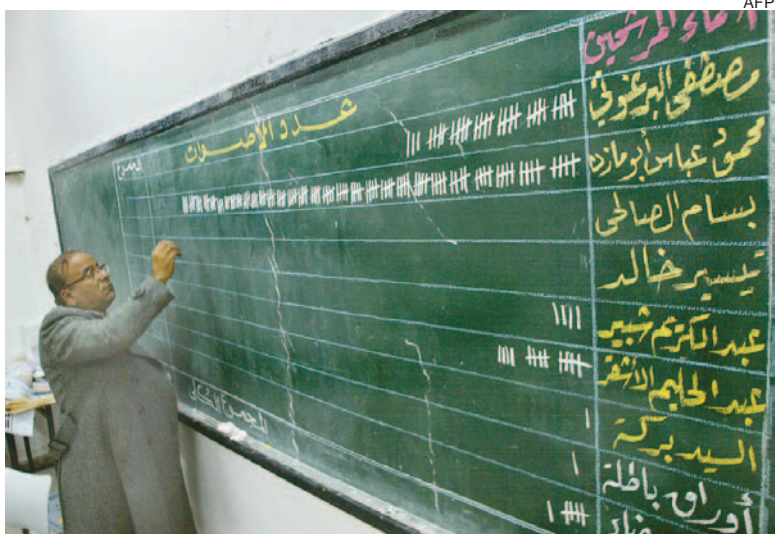 AFP
أسماء المرشحين
عدد الأصوات
المجموع
مصطفى البرغوثي
محمود عباس أبو مازن
بسام الصالحي
تيسير خالد
عبد الكريم شبير
عبد الحليم الأشقر
السيد بركة
أوراق باطلة
أوراق